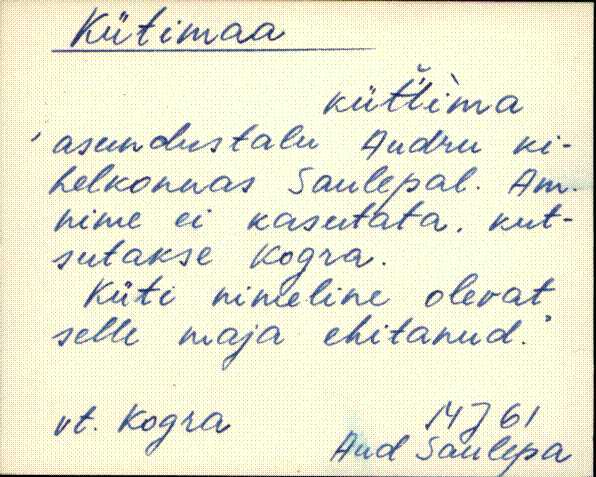 Kütimaa
küt̆t̀ima
asundustalu Audru ki-
helkonnas Saulepal. Am.
nime ei kasutata, kut-
sutakse Kogra.
Küti nimeline olevat
selle maja ehitanud."
vt. Kogra
Aud Saulepa